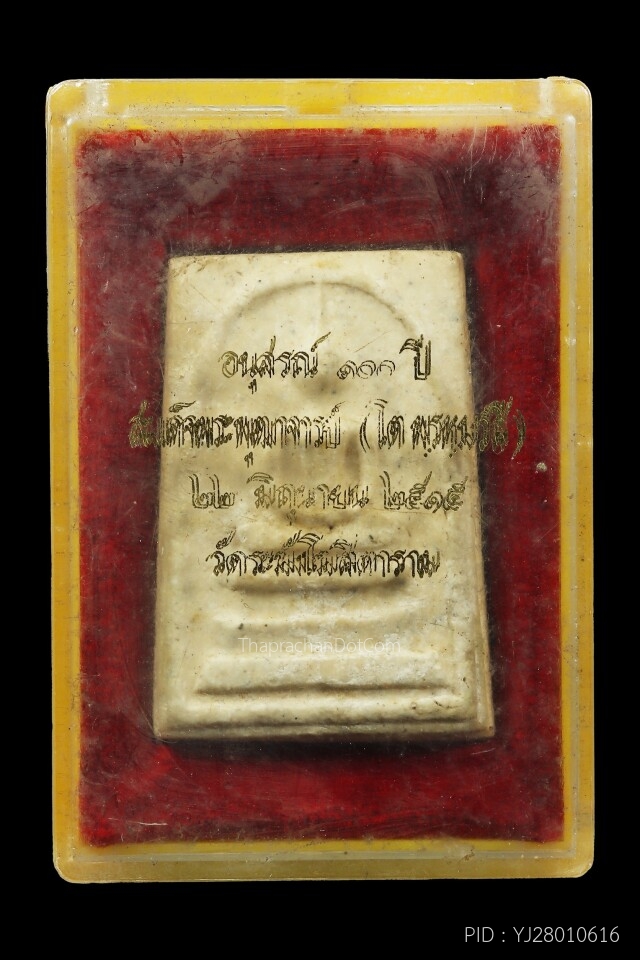 อนุสรณ์ ๑๐๐ ปี
สมเด็จพระพุฒาจารย์ (โต พฺรหฺมรํสี)
๒๒ มิถุนายน ๒๕๑๕
วัดระฆังโฆสิตาราม
ThaprachanDotCom
PID : YJ28010616